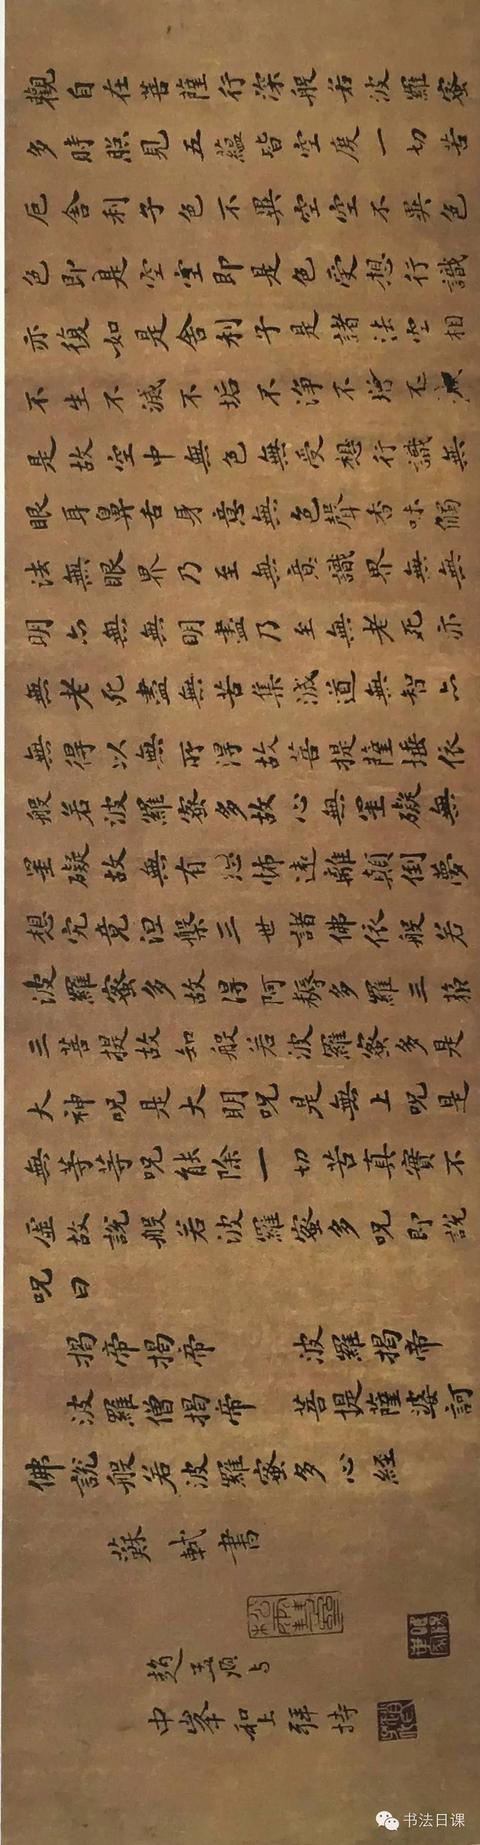 觀自在菩薩行深般若波羅蜜
多時照見五蘊皆空度一切苦
厄舍利子色不異空空不異色
色即是空空即是色受想行識
亦復如是舍利子是諸法空相
不生不滅不垢不淨不增不減
是故空中無色無受想行識無
眼耳鼻舌身意無色聲香味觸
法無眼界乃至無意識界無無
明亦無無明盡乃至無老死亦
無老死盡無苦集滅道無智亦
無得以無所得故菩提薩埵依
般若波羅蜜多故心無罣礙無
罣礙故無有恐怖遠離顛倒夢
想究竟涅槃三世諸佛依般若
波羅蜜多故得阿耨多羅三藐
三菩提故知般若波羅蜜多是
大神呪是大明呪是無上呪是
無等等呪能除一切苦真實不
虛故說般若波羅蜜多呪即說
呪曰
揭帝揭帝 波羅揭帝
波羅僧揭帝 菩提薩婆訶
佛說般若波羅蜜多心經
蘇軾書
趙孟頫与
中峯和上拜持
书法日课